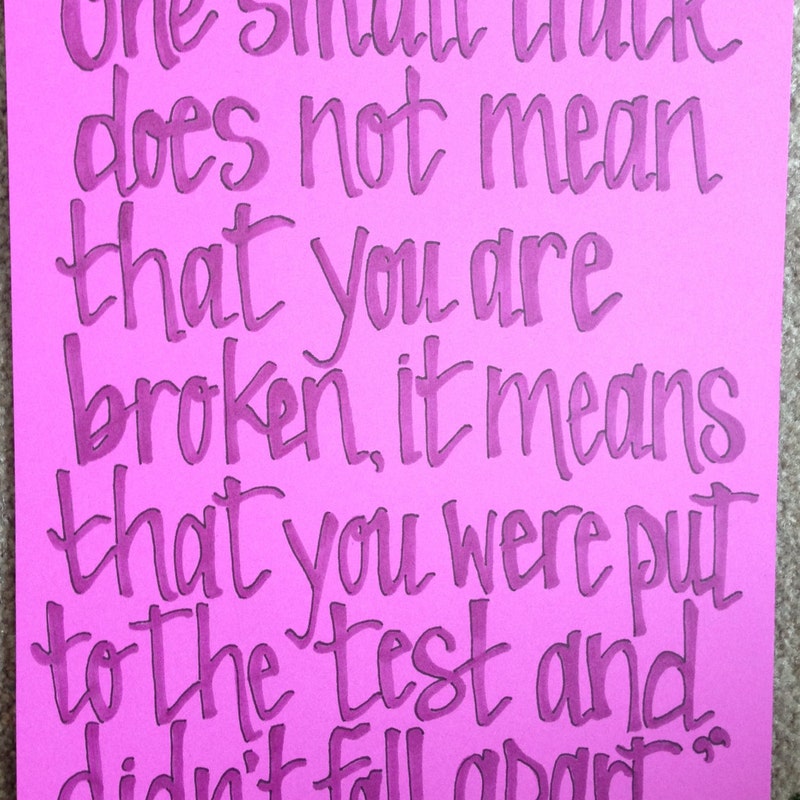 One small crack
does not mean
that you are
broken, it means
that you were put
to the test and
didn't fall apart"